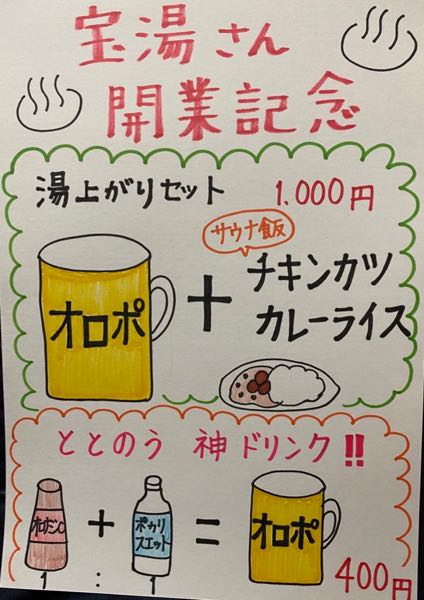 宝湯さん
開業記念
湯上がりセット 1.000円
サウナ飯
オロポ + チキンカツ
カレーライス
ととのう 神ドリンク!!
オロナミンC + ポカリ
スエット = オロポ
1 : 1 400円